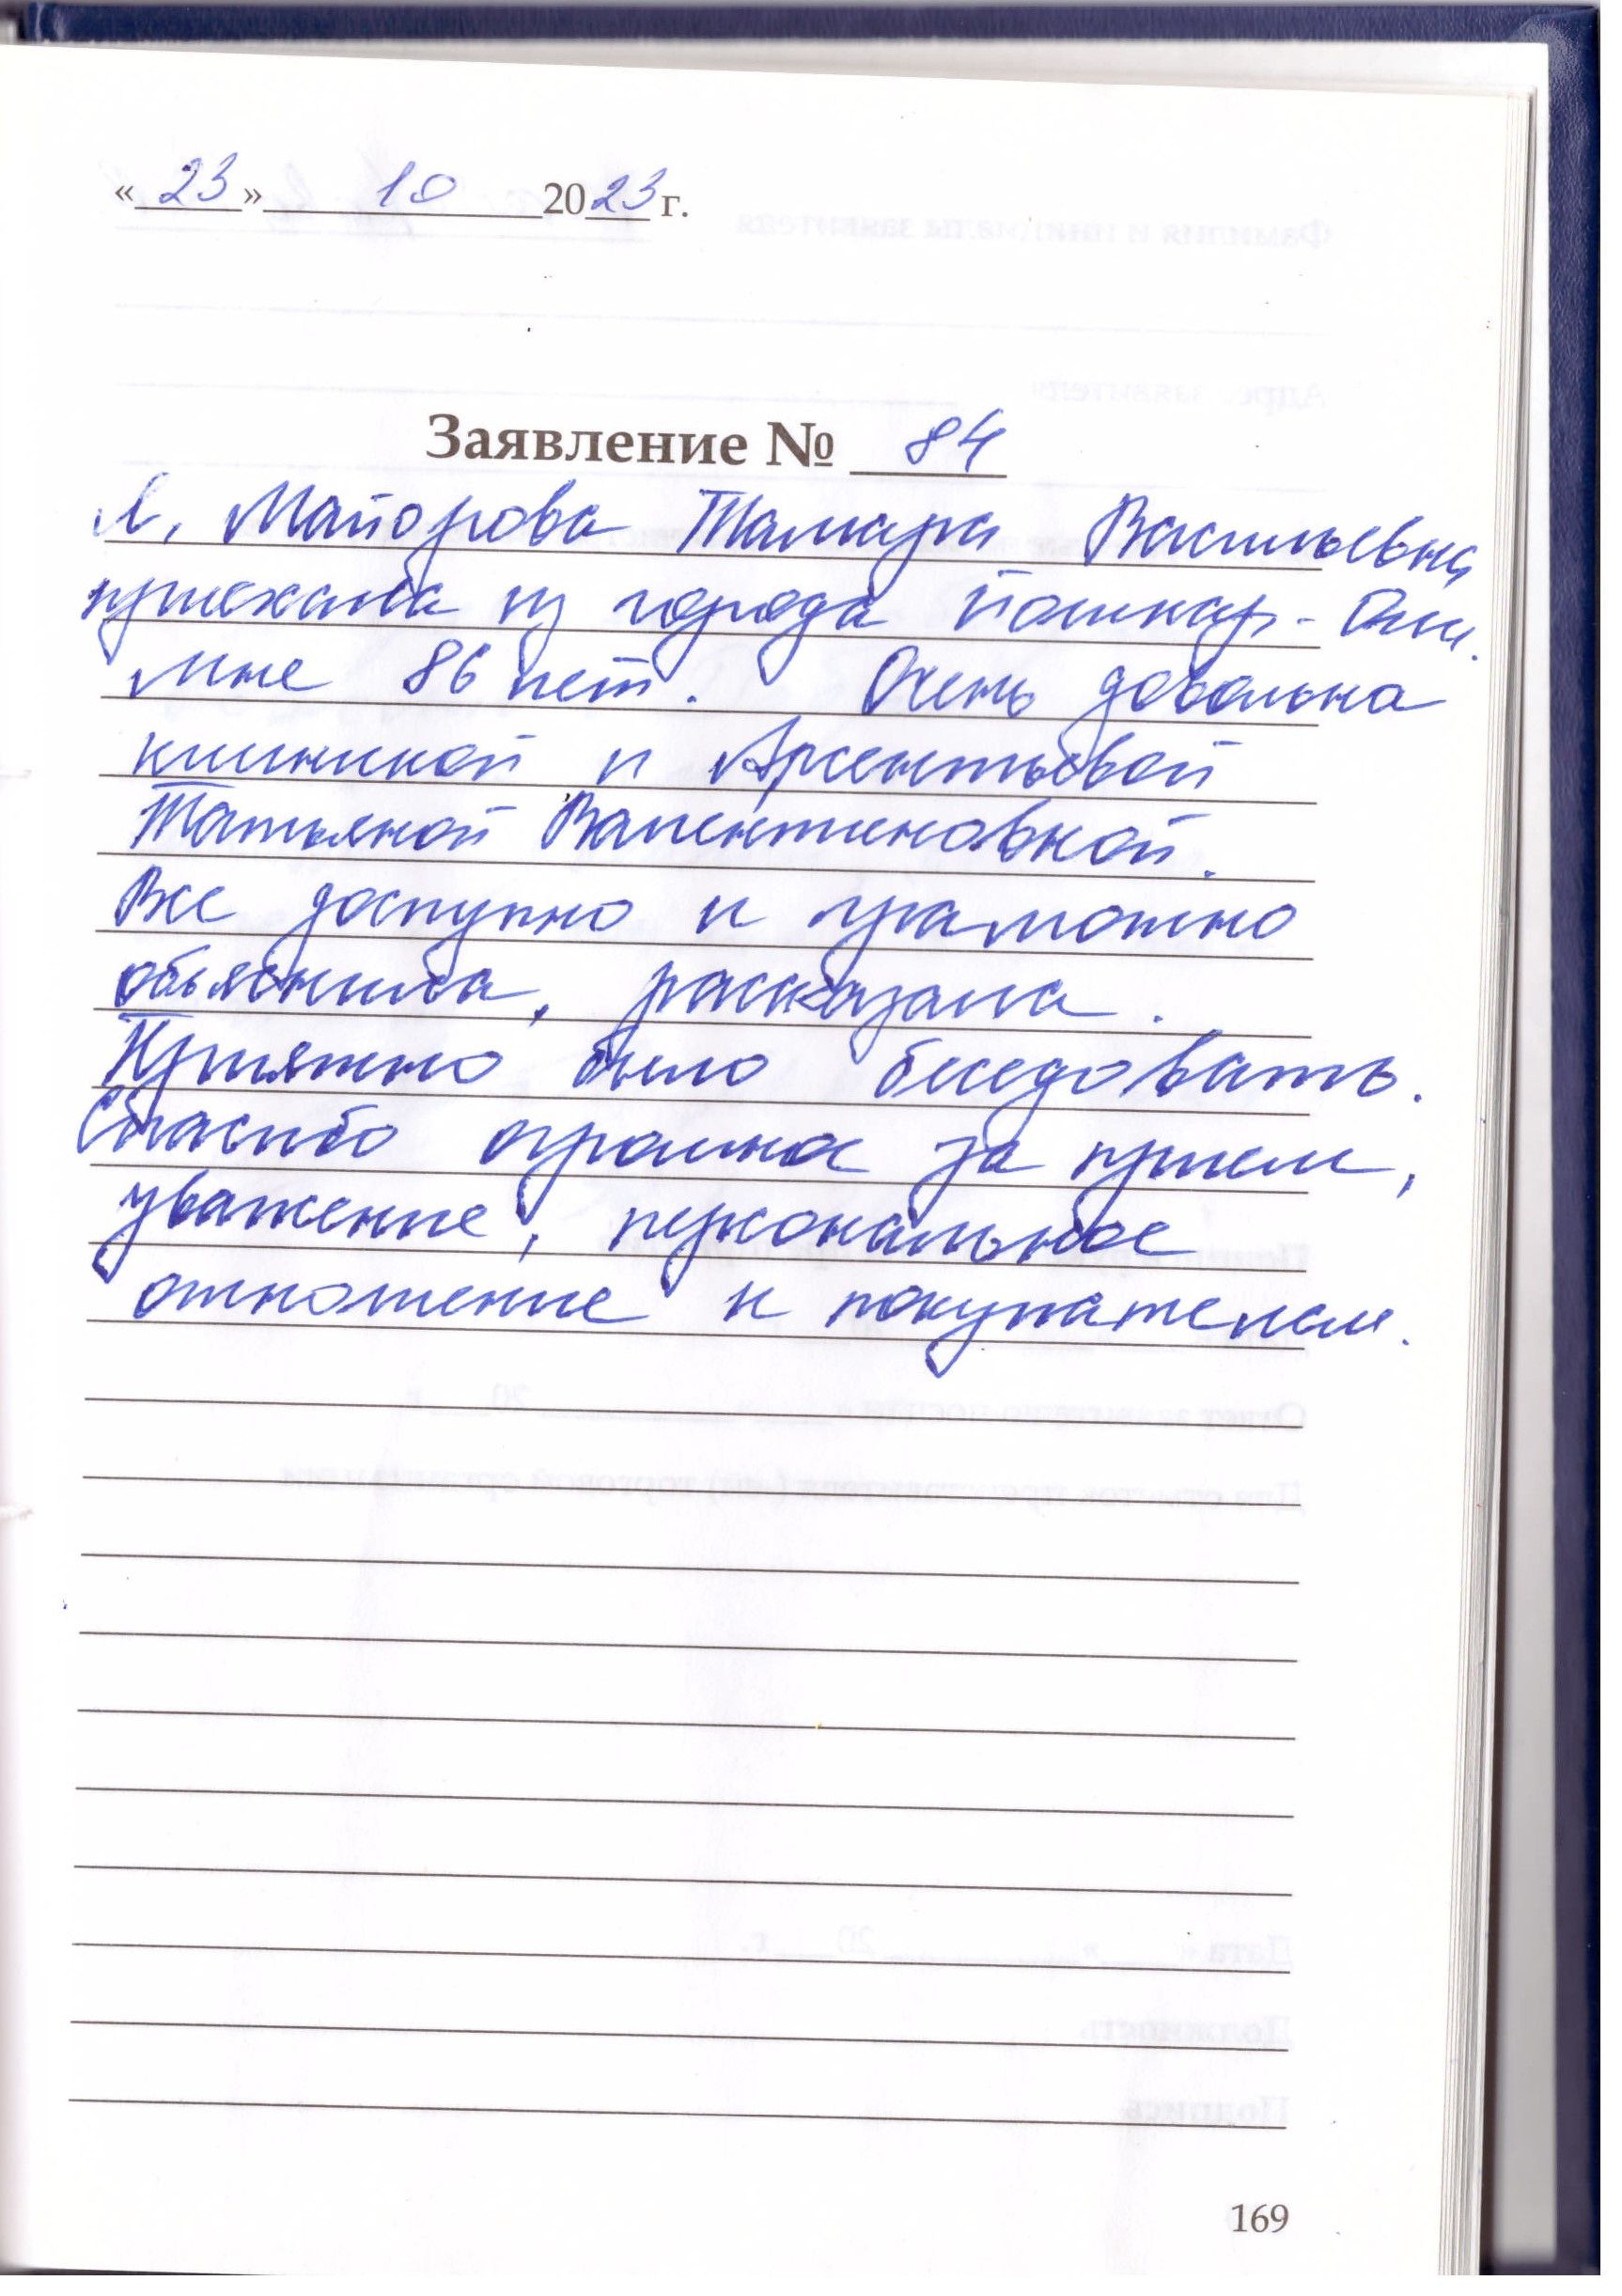 «23» 10 2023 г.
Заявление № 84
Я, Майорова Тамара Васильевна
приехала из города Йошкар-Олы.
Мне 86 лет. Очень довольна
клиникой и Арсентьевой
Татьяной Валентиновной.
Все доступно и грамотно
объяснила, рассказала.
Приятно было беседовать.
Спасибо огромное за прием,
уважение, персональное
отношение к покупателям.
169